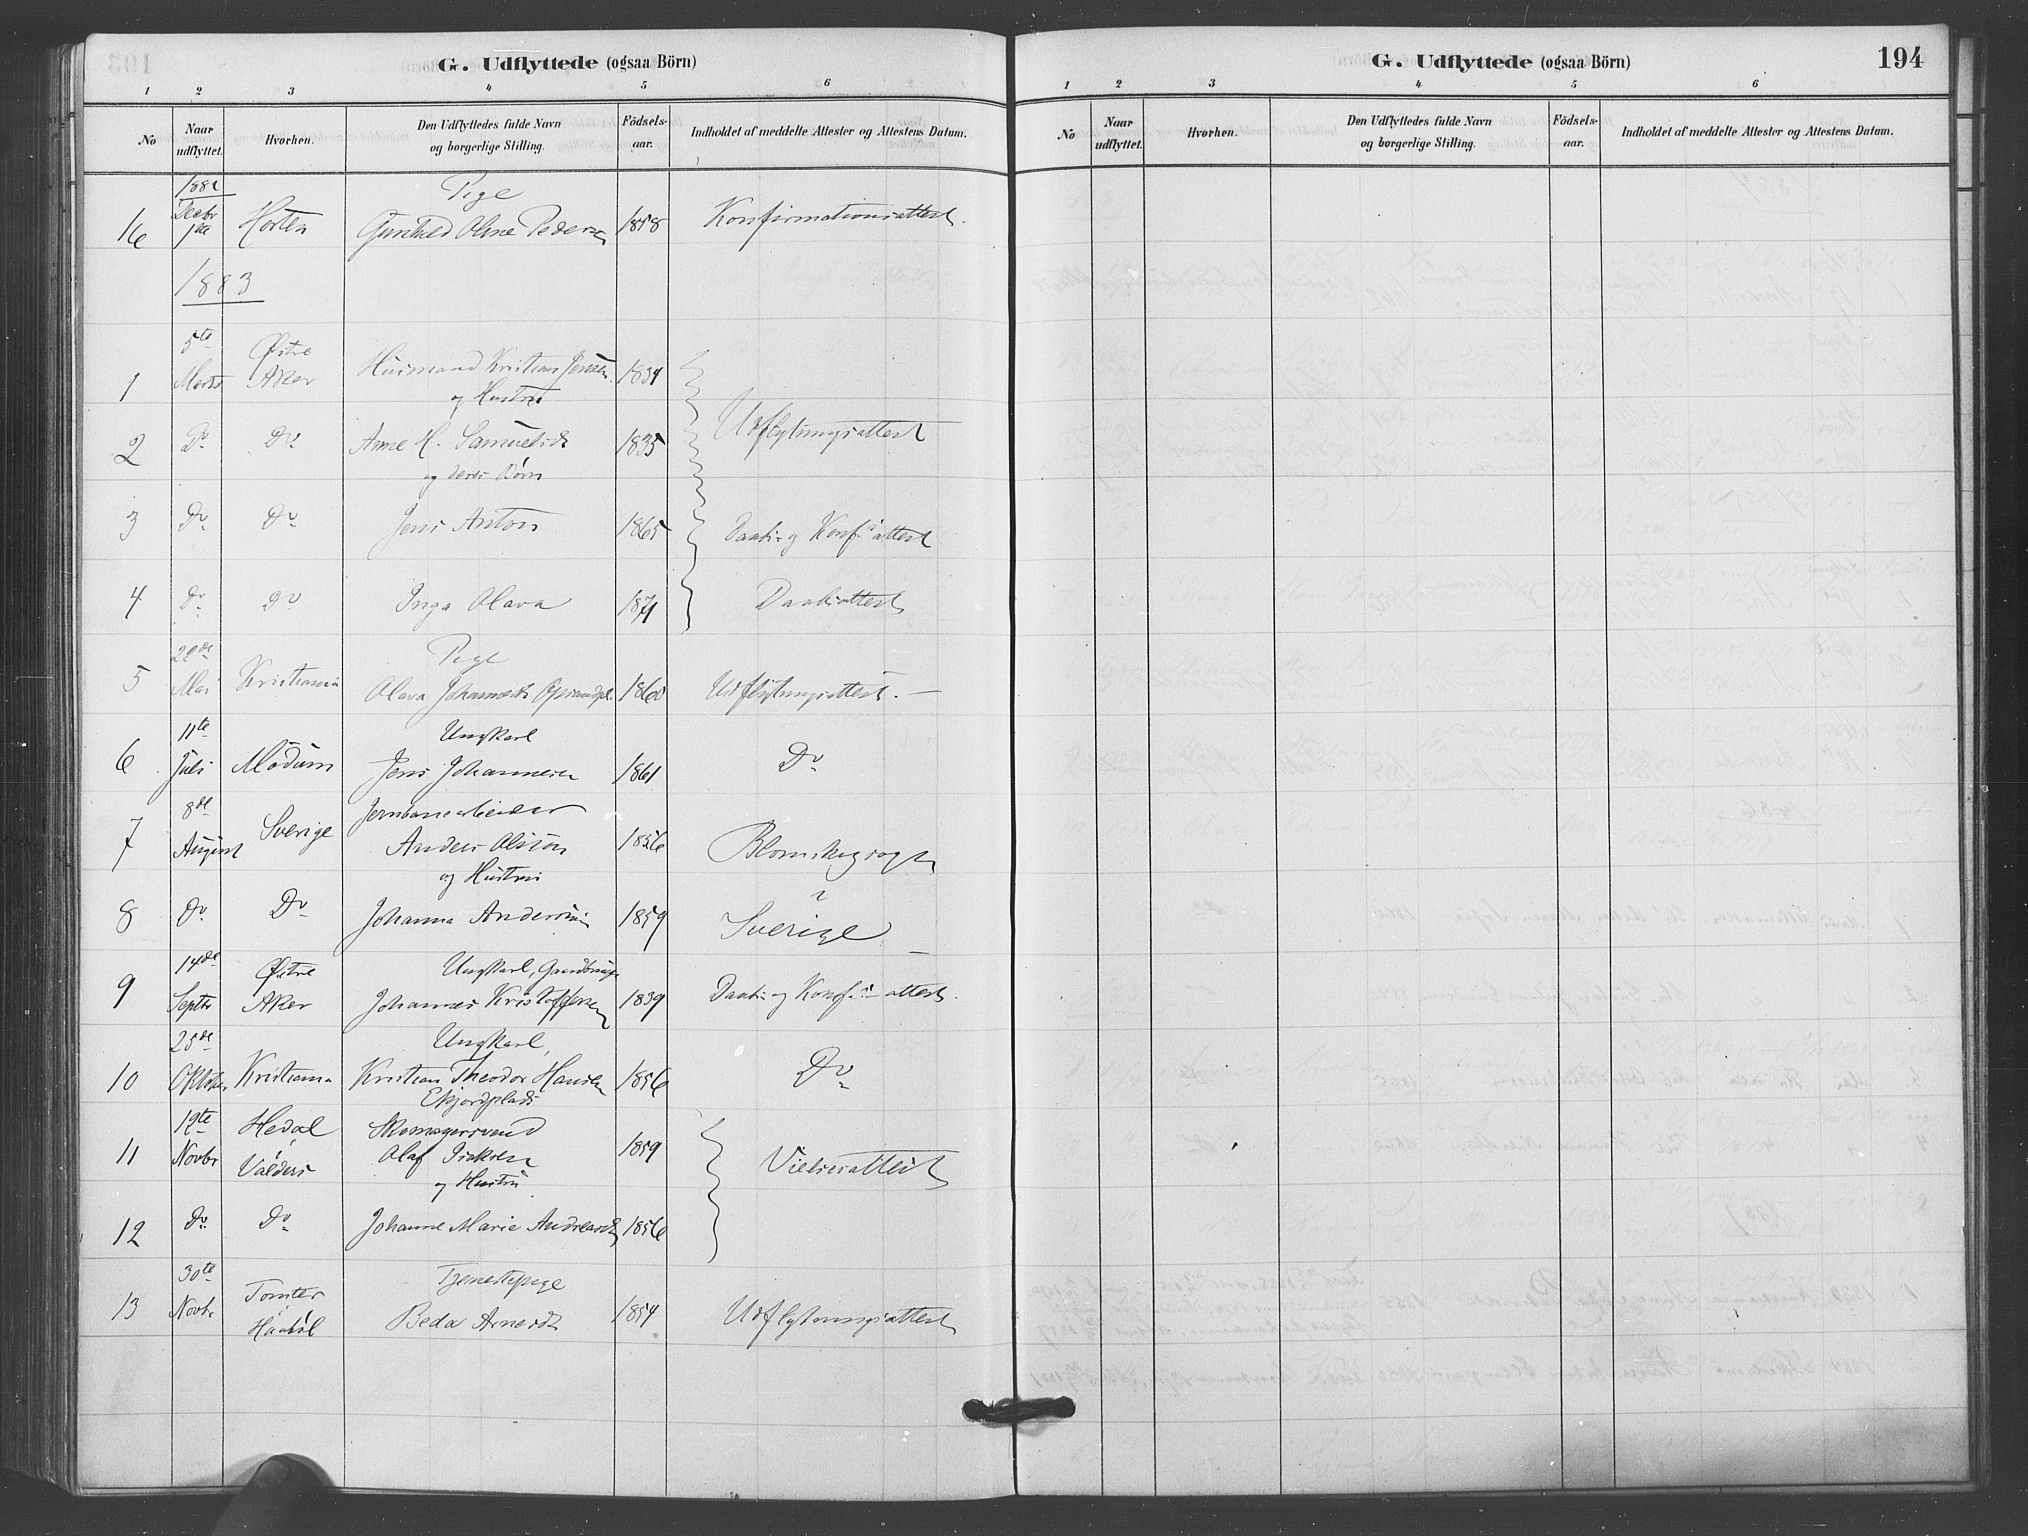 G. Udflyttede (ogsaa Börn)
1 2 3 4 5 6
No
Naar udflyttet.
Hvorhen.
Den Udflyttedes fulde Navn og borgerlige Stilling.
Födsels-aar.
Indholdet af meddelte Attester og Attestens Datum.
1882
Pige
16 Decbr 1ste Horten Gunhild Oline Pedersen 1858 Konfirmationsattest.
1883
5te Østre
1 Marts Aker Husmand Kristian Jensen 1834
og Hustru
2 Do Do Anne H. Samuelsdr 1835 Udflytningsattest
og deres Børn
3 Do Do Jens Anton 1865 Daabs- og Konf. attest
4 Do Do Inga Olava 1871 Daabsattest
Pige
5 Mai Kristiania Olava Johannesdr 1860 Udflytningsattest. —
11te Ungkarl
6 Juli Modum Jens Johannesen 1861 Do
8de Jernbanearbeider
7 August Sverige Anders Olsson 1856 Blomskogsogn
og Hustru i
8 Do Do Johanna Andersdr 1859 Sverige
14de Østre Ungkarl,
9 Septbr Aker Johannes Kristoffersen 1839 Daabs- og Konf. attest.
25de Ungkarl,
10 Oktober Kristiania Kristian Theodor Hansen 1856 Do
19de Hedal Skomagersvend
11 Novbr i Valders Olaf Isaksen 1859 Vielsesattest
og Hustru
12 Do Do Johanne Marie Andreasdr 1856
30te Tomter Tjenestepige
13 Novbr i Haabøl Beda Arnesdr 1854 Udflytningsattest
G. Udflyttede (ogsaa Börn) 194
1 2 3 4 5 6
No
Naar udflyttet.
Hvorhen.
Den Udflyttedes fulde Navn og borgerlige Stilling.
Födsels-aar.
Indholdet af meddelte Attester og Attestens Datum.